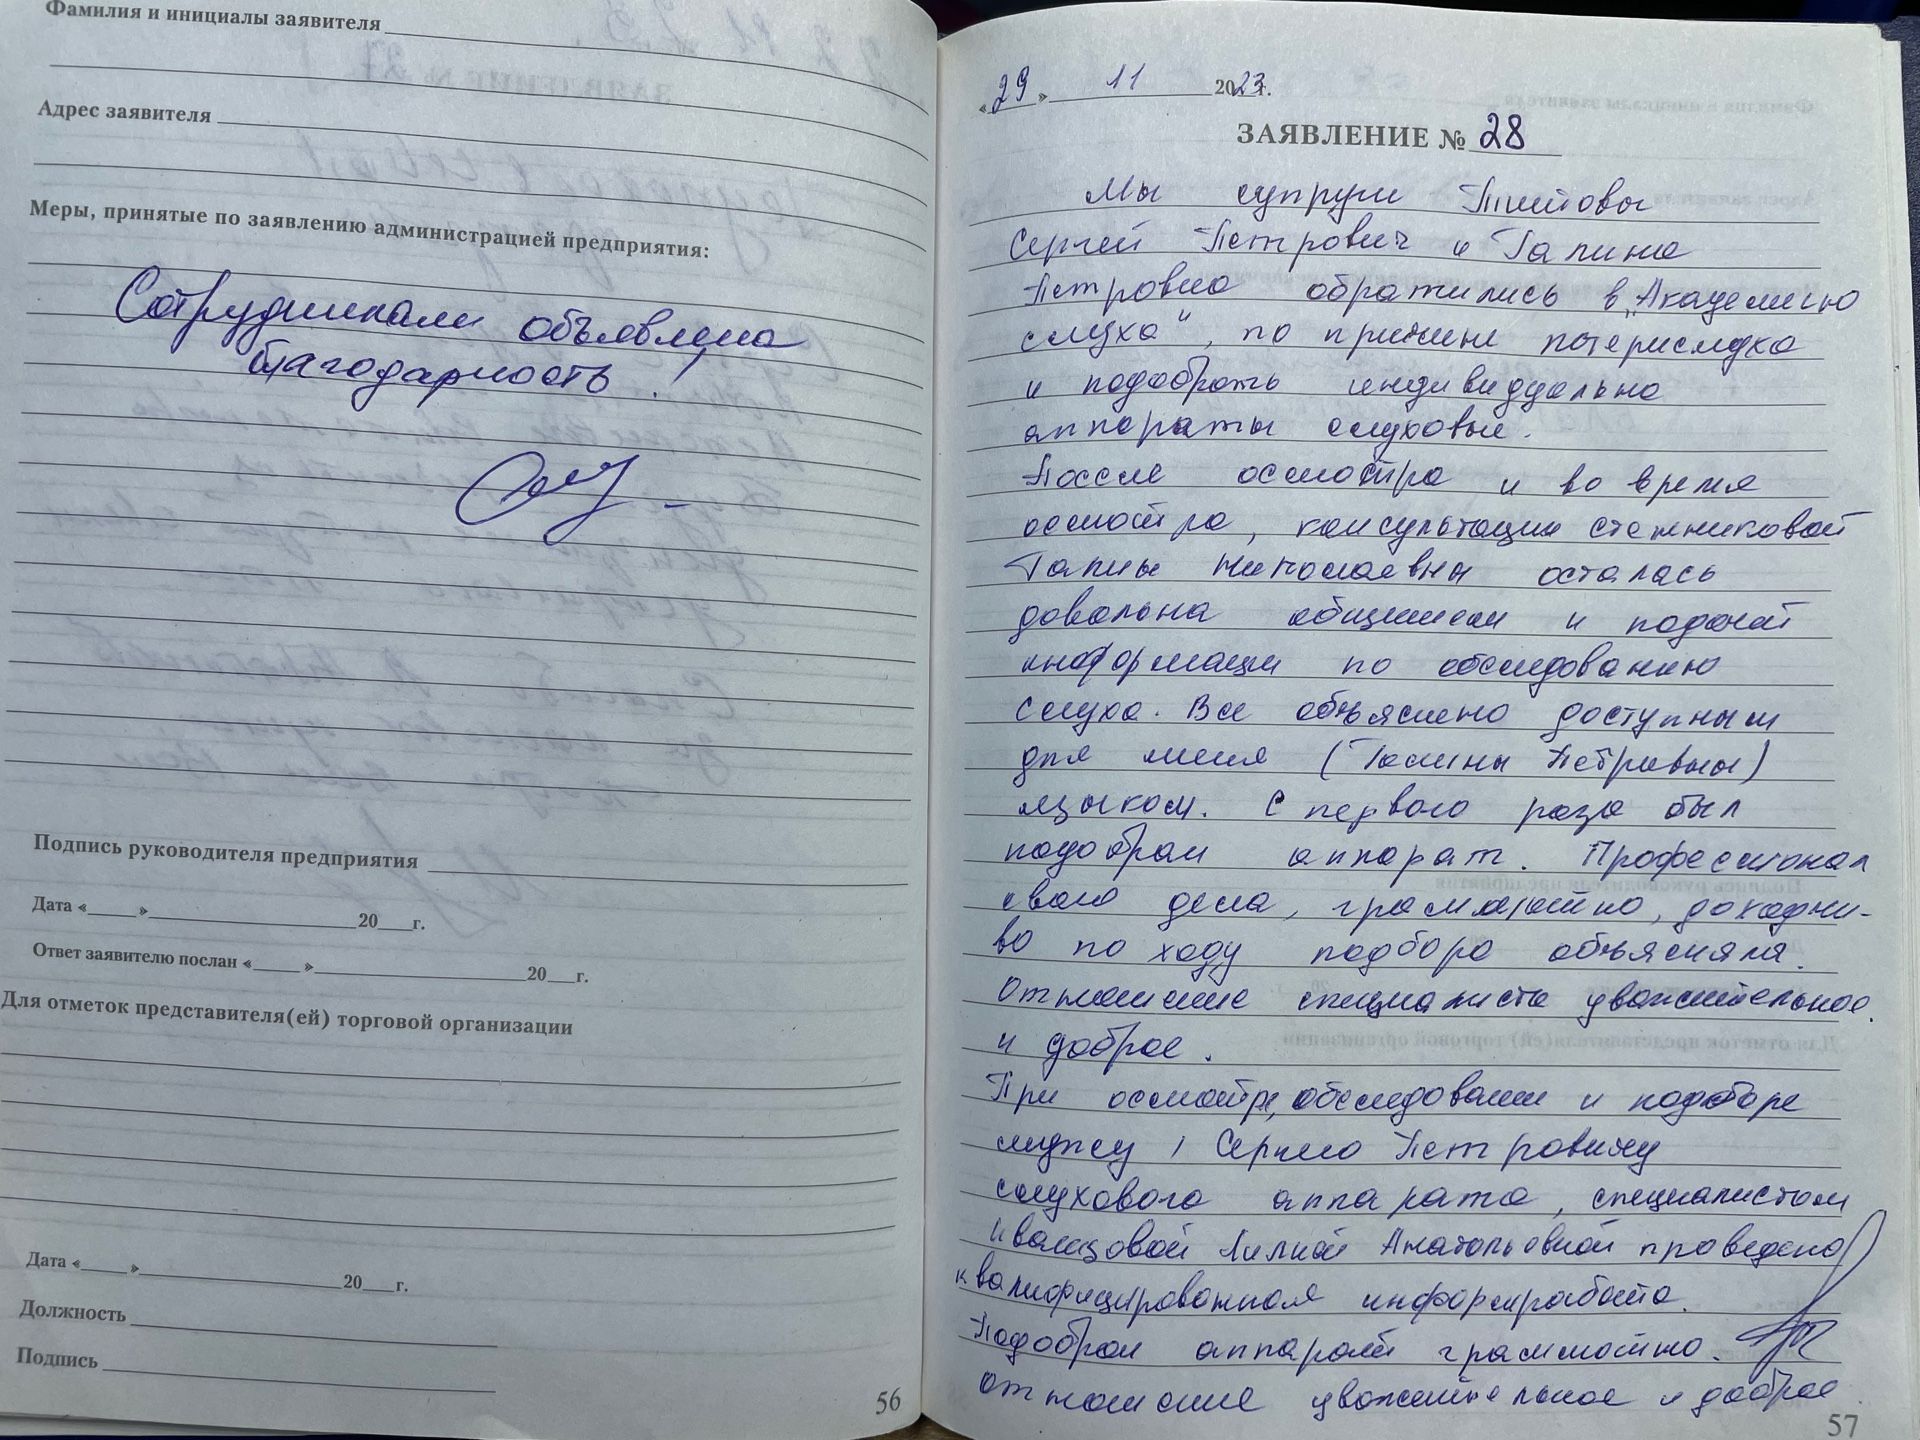 Фамилия и инициалы заявителя
Адрес заявителя
Меры, принятые по заявлению администрацией предприятия:
Сотрудникам объявлена
благодарность!
Подпись руководителя предприятия
Дата « » 20 г.
Ответ заявителю послан « » 20 г.
Для отметок представителя(ей) торговой организации
Дата « » 20 г.
Должность
Подпись
56
«29» 11 2023г.
ЗАЯВЛЕНИЕ № 28
Мы супруги
Сергей Петрович и Галина
Петровна обратились в „Академию
слуха“, по причине потерислуха
и подобрать индивидуально
аппараты слуховые.
После осмотра и во время
осмотра, консультации Стажниковой
Галины Николаевны осталась
довольна общением и подачей
информации по обследованию
слуха. Все объяснено доступным
для меня (Галины Петровны)
языком. С первого раза был
подобран аппарат. Профессионал
своего дела, грамотно, доходчи-
во по ходу подбора объясняла.
Отношение специалиста уважительное
и доброе.
При осмотре, обследовании и подборе
мужу, Сергею Петровичу
слухового аппарата, специалистом
Иванцовой Лилией Анатольевной проведена
квалифицированная информработа.
Подобран аппарат грамотно.
Отношение уважительное и доброе.
57